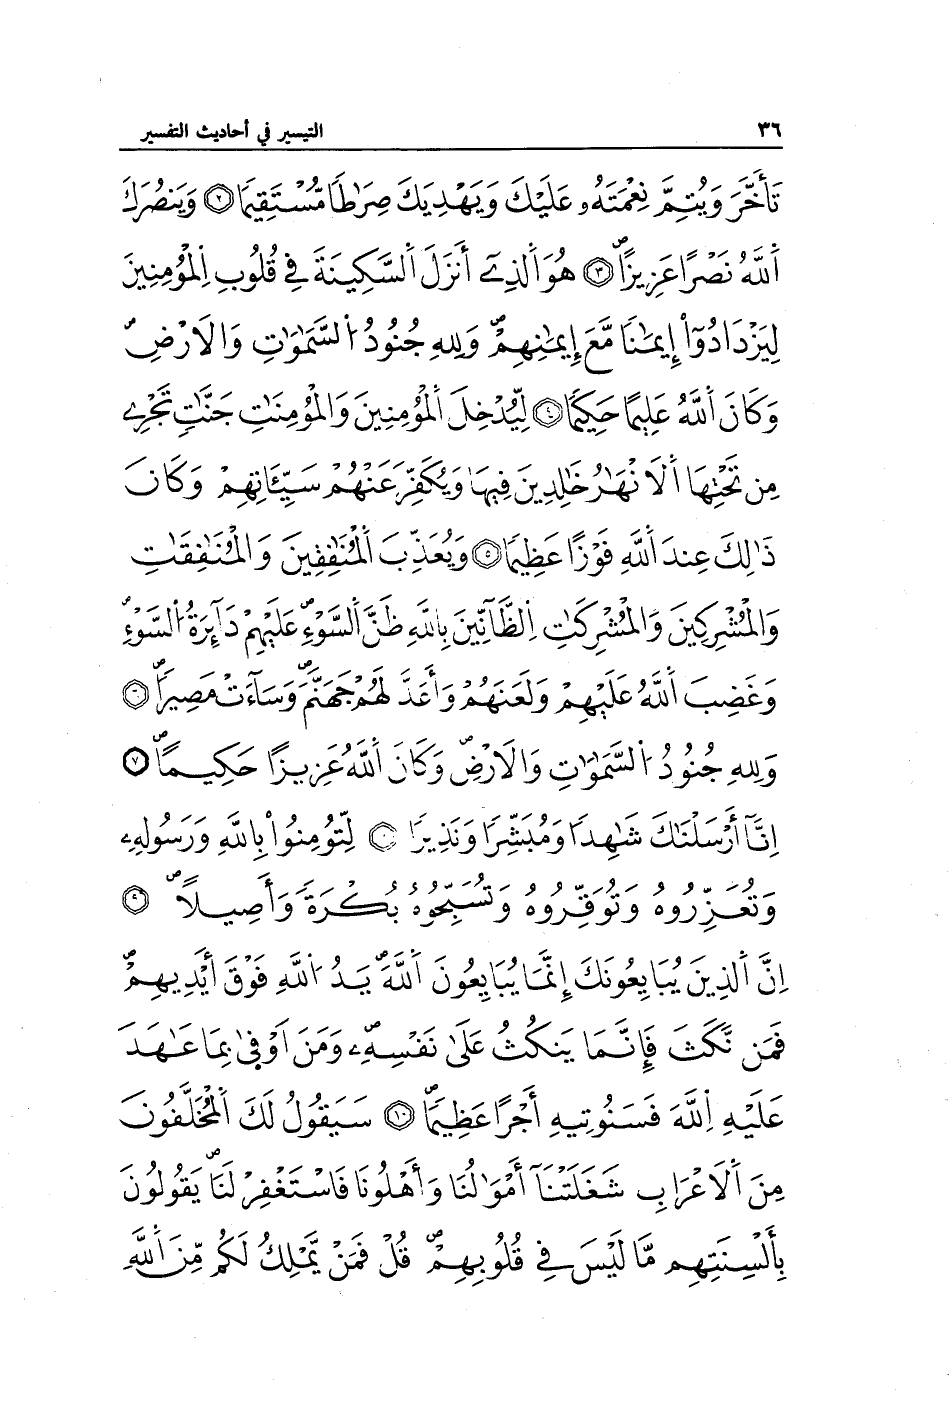 ٣٦ التيسير في أحاديث التفسير
تَأَخَّرَ وَيُتِمَّ نِعْمَتَهُۥ عَلَيْكَ وَيَهْدِيَكَ صِرَٰطاً مُّسْتَقِيماً ٢ وَيَنصُرَكَ
اَ۬للَّهُ نَصْراً عَزِيزاًۖ ٣ هُوَ اَ۬لذِےٓ أَنزَلَ اَ۬لسَّكِينَةَ فِے قُلُوبِ اِ۬لْمُؤْمِنِينَ
لِيَزْدَادُوٓاْ إِيمَٰناً مَّعَ إِيمَٰنِهِمْۖ وَلِلهِ جُنُودُ اُ۬لسَّمَٰوَٰتِ وَالَارْضِۖ
وَكَانَ اَ۬للَّهُ عَلِيماً حَكِيماً ٤ لِّيُدْخِلَ اَ۬لْمُؤْمِنِينَ وَالْمُؤْمِنَٰتِ جَنَّٰتٍ تَجْرِے
مِن تَحْتِهَا اَ۬لَانْهَٰرُ خَٰلِدِينَ فِيهَا وَيُكَفِّرَ عَنْهُمْ سَيِّـَٔاتِهِمْ وَكَانَ
ذَٰلِكَ عِندَ اَ۬للَّهِ فَوْزاً عَظِيماً ٥ وَيُعَذِّبَ اَ۬لْمُنَٰفِقِينَ وَالْمُنَٰفِقَٰتِ
وَالْمُشْرِكِينَ وَالْمُشْرِكَٰتِ اِ۬لظَّآنِّينَ بِاللَّهِ ظَنَّ اَ۬لسَّوْءِۖ عَلَيْهِمْ دَآئِرَةُ اُ۬لسَّوْءِۖ
وَغَضِبَ اَ۬للَّهُ عَلَيْهِمْ وَلَعَنَهُمْ وَأَعَدَّ لَهُمْ جَهَنَّمَۖ وَسَآءَتْ مَصِيراًۖ ٦
وَلِلهِ جُنُودُ اُ۬لسَّمَٰوَٰتِ وَالَارْضِۖ وَكَانَ اَ۬للَّهُ عَزِيزاً حَكِيماًۖ ٧
اِنَّآ أَرْسَلْنَٰكَ شَٰهِداً وَمُبَشِّراً وَنَذِيراً ٨ لِّتُومِنُواْ بِاللَّهِ وَرَسُولِهِۦ
وَتُعَزِّرُوهُ وَتُوَقِّرُوهُ وَتُسَبِّحُوهُ بُكْرَةً وَأَصِيلاًۖ ٩
اِنَّ اَ۬لذِينَ يُبَايِعُونَكَ إِنَّمَا يُبَايِعُونَ اَ۬للَّهَۖ يَدُ اُ۬للَّهِ فَوْقَ أَيْدِيهِمْۖ
فَمَن نَّكَثَ فَإِنَّمَا يَنكُثُ عَلَىٰ نَفْسِهِۦۖ وَمَنَ اَوْفَىٰ بِمَا عَٰهَدَ
عَلَيْهِ اِ۬للَّهَ فَسَنُوتِيهِ أَجْراً عَظِيماًۖ ١٠ سَيَقُولُ لَكَ اَ۬لْمُخَلَّفُونَ
مِنَ اَ۬لَاعْرَابِ شَغَلَتْنَآ أَمْوَٰلُنَا وَأَهْلُونَا فَاسْتَغْفِرْ لَنَاۖ يَقُولُونَ
بِأَلْسِنَتِهِم مَّا لَيْسَ فِے قُلُوبِهِمْۖ قُلْ فَمَنْ يَّمْلِكُ لَكُم مِّنَ اَ۬للَّهِ